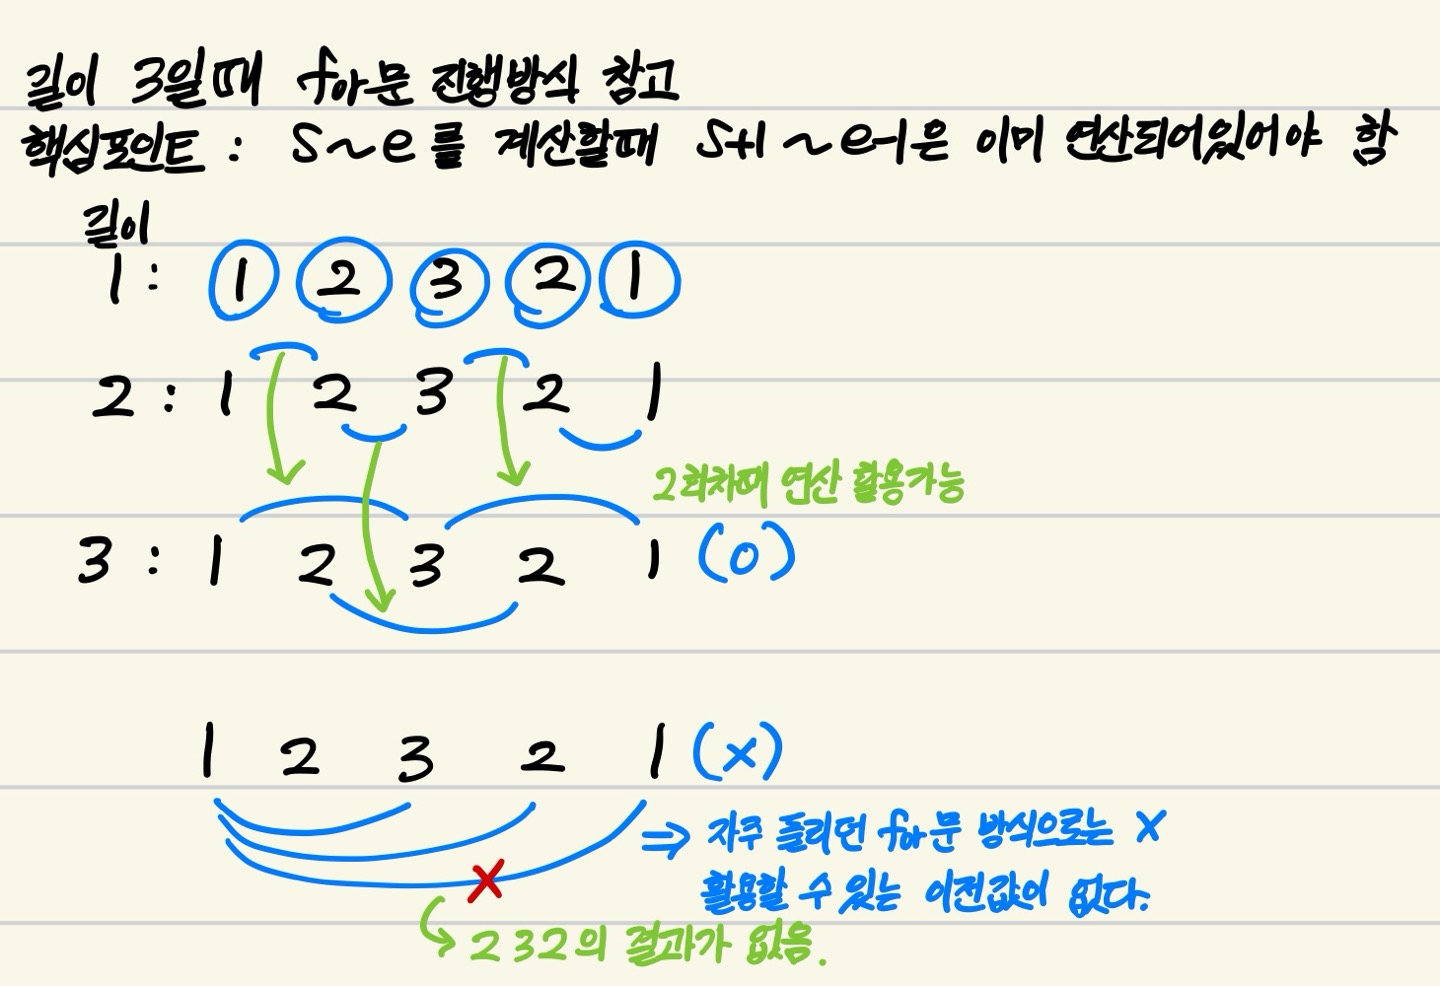 길이 3일때 for문 진행방식 참고
핵심포인트 : S~e를 계산할때 S+1 ~ e-1은 이미 연산되어있어야 함
길이
1 : 1 2 3 2 1
2 : 1 2 3 2 1
2회차때 연산 활용가능
3 : 1 2 3 2 1 (O)
1 2 3 2 1 (X)
⇒ 자주 돌리던 for문 방식으로는 X
활용할 수 있는 이전값이 없다.
2 3 2의 결과가 없음.